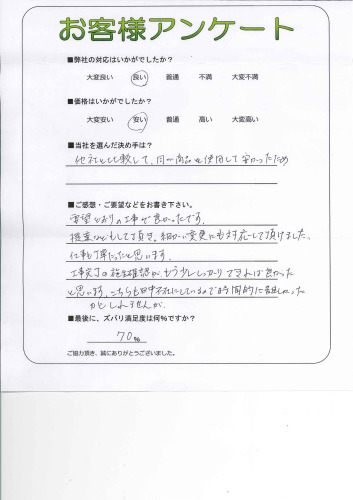 お客様アンケート
■弊社の対応はいかがでしたか？
大変良い 良い 普通 不満 大変不満
■価格はいかがでしたか？
大変安い 安い 普通 高い 大変高い
■当社を選んだ決め手は？
他社と比較して、同の商品を使用して安かったため
■ご感想・ご要望などをお書き下さい。
要望どおりの工事で良かったです。
提案などもして頂き、細かい変更にも対応して頂けました。
仕事も丁寧だったと思います。
工事完了の施主確認が、もう少ししっかりできれば良かった
と思います。こちらも日中不在にしているので時間的に難しかった
かもしれませんが。
■最後に、ズバリ満足度は何%ですか？
70%
ご協力頂き、誠にありがとうございました。